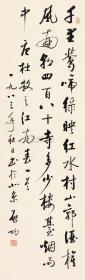 千里莺啼绿映红水村山郭酒旗
风南朝四百八十寺多少楼台烟雨
中 唐杜牧之江南春
一九八三年秋日书于北京 启功